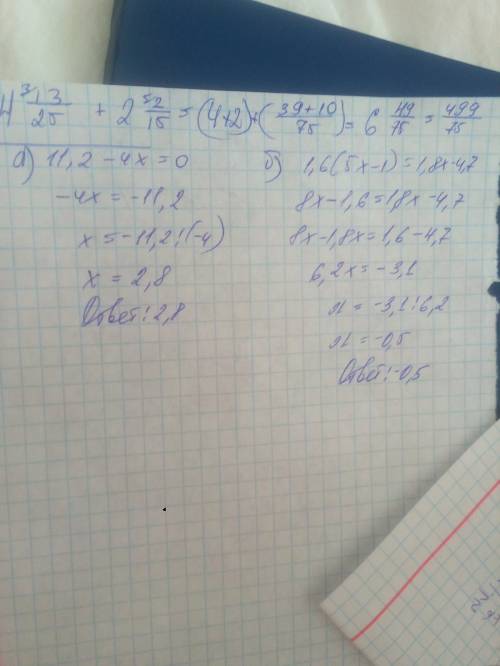 4 ³13/25 + 2 ⁵2/15 = (4+2)+(39+10/75) = 6 49/75 = 499/75
а) 11,2 - 4x = 0
-4x = -11,2
x = -11,2:(-4)
x = 2,8
Ответ: 2,8
б) 1,6(5x-1) = 1,8x-4,7
8x-1,6 = 1,8x-4,7
8x-1,8x = 1,6-4,7
6,2x = -3,1
x = -3,1:6,2
x = -0,5
Ответ: -0,5